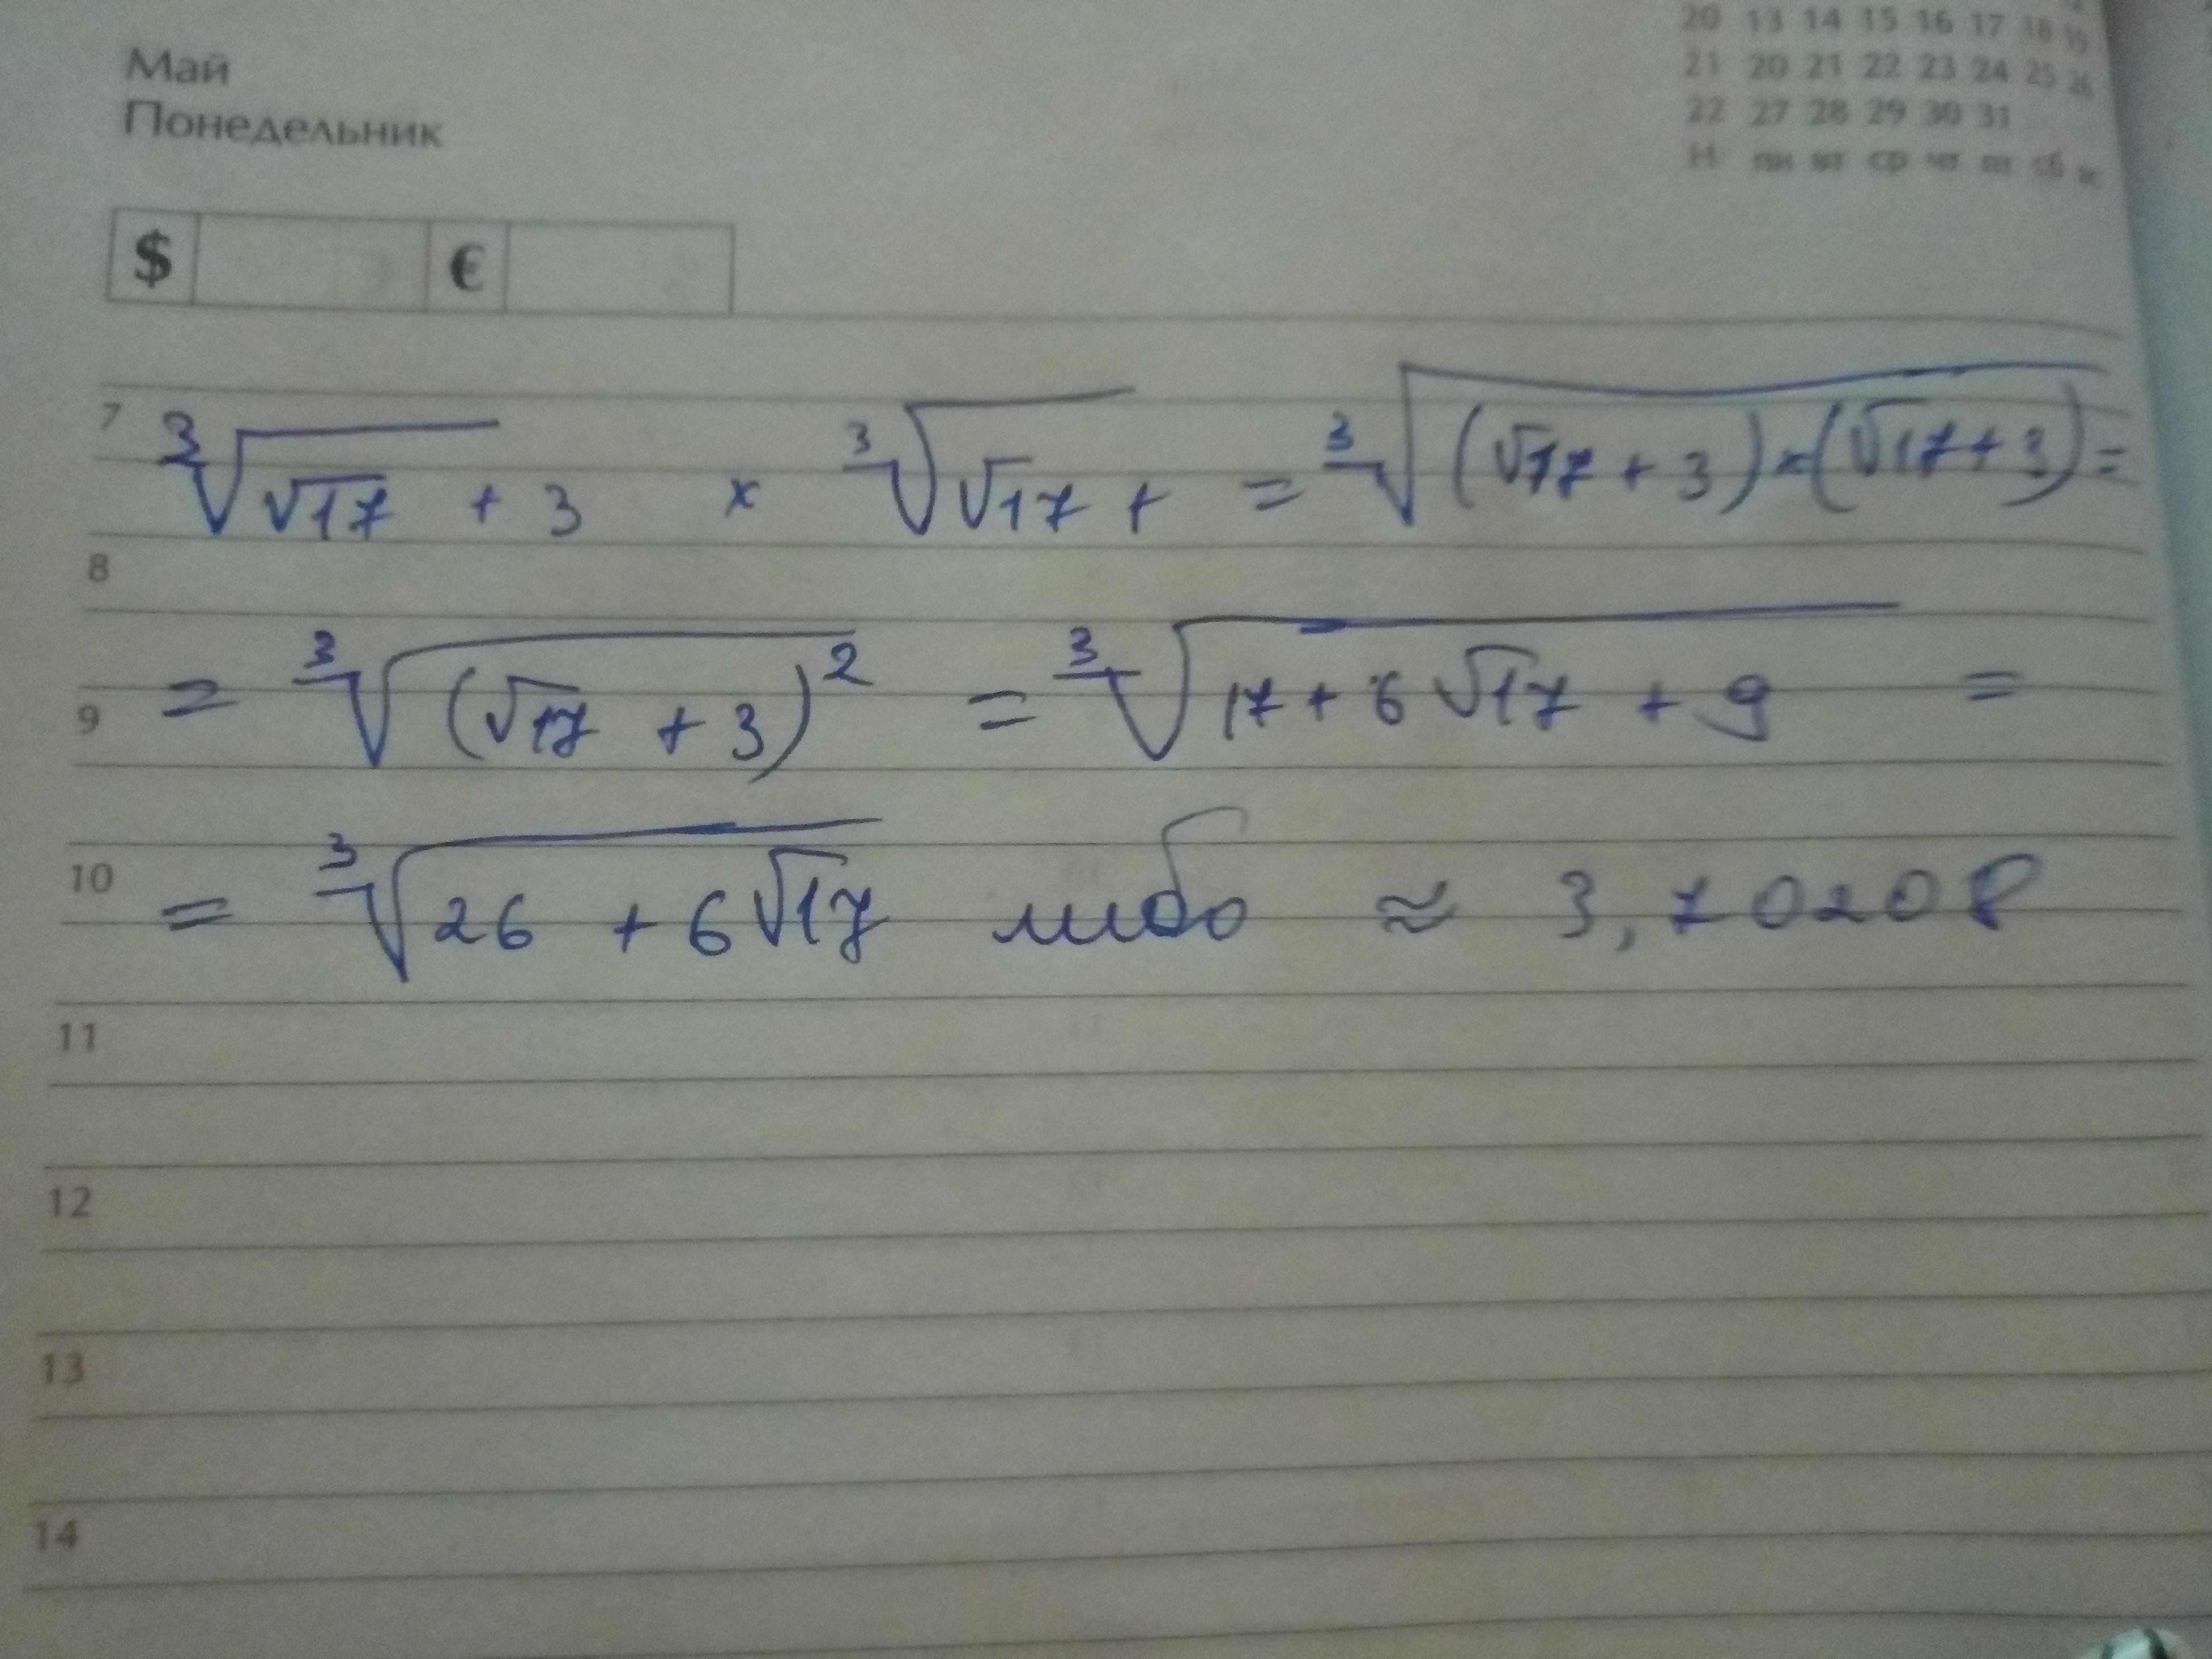 Май
Понедельник
20 13 14 15 16 17 18 19
21 20 21 22 23 24 25 26
22 27 28 29 30 31
Н пн вт ср чт пт сб вс
$ €
7
∛(√17) + 3 × ∛(√17) + = ∛((√17 + 3) × (√17 + 3)) =
8
9
= ∛((√17 + 3)²) = ∛(17 + 6√17 + 9) =
10
= ∛(26 + 6√17) либо ≈ 3,70208
11
12
13
14